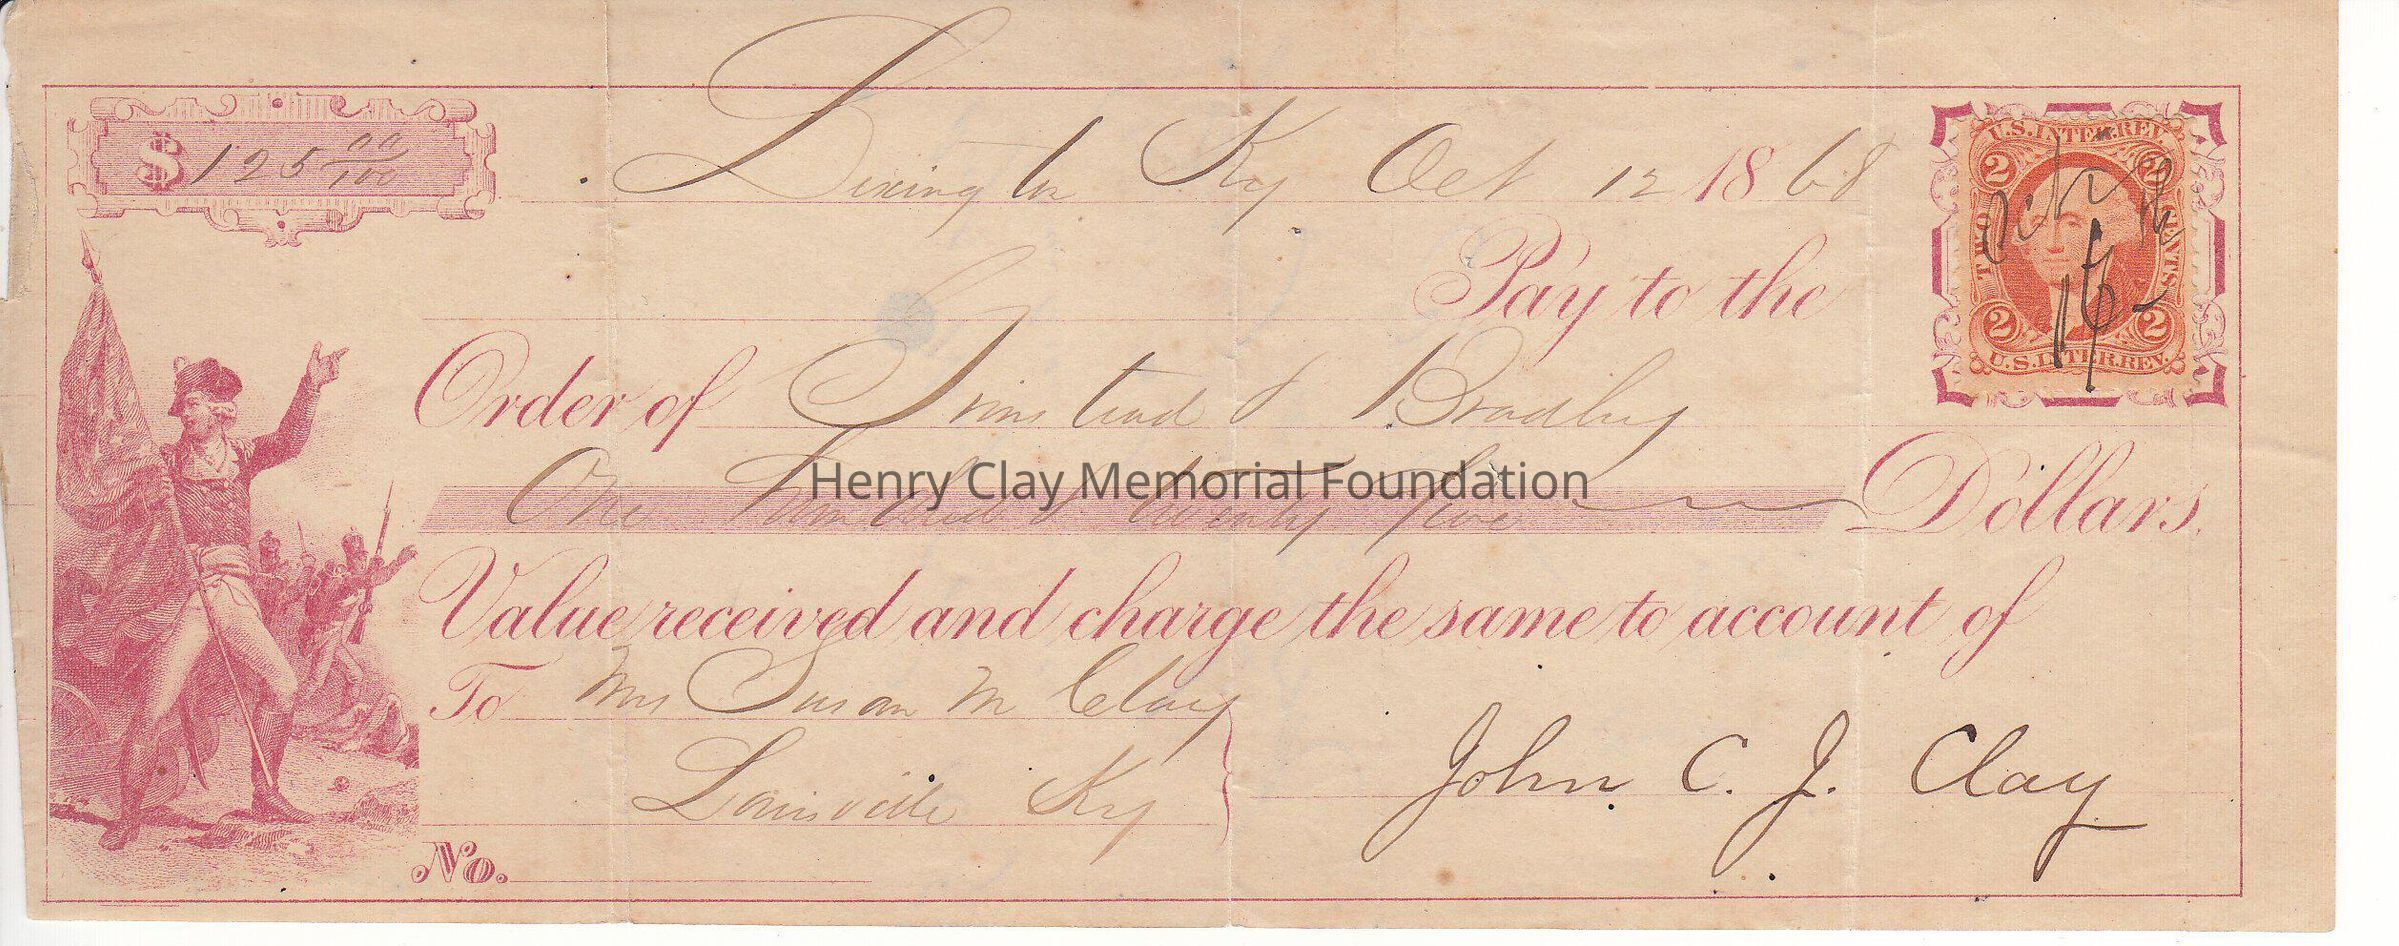 $ 125 00/100
Lexington Ky Oct 12 1868
U.S. INTER. REV.
2 2
TWO CENTS
2 2
U.S. INTER. REV.
Pay to the
Order of Grinstead & Bradley
One Hundred & twenty five Dollars.
Henry Clay Memorial Foundation
Value received and charge the same to account of
To Mrs Susan M Clay
Louisville Ky
John C. J. Clay
No.